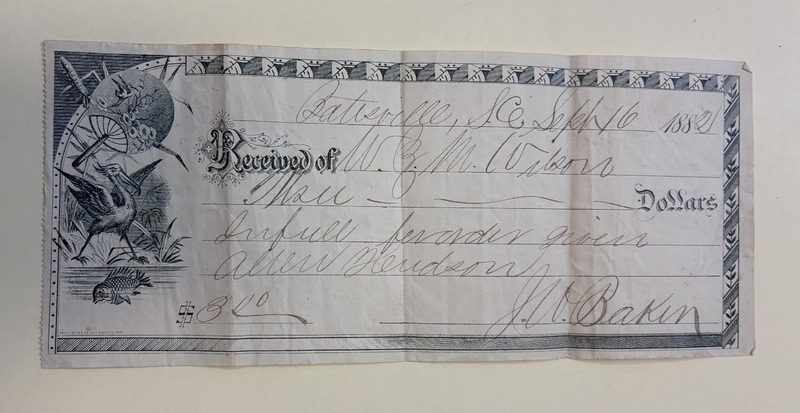 Batesville, S.C., Sept 16 1882
Received of W. J. M. Wilson
Three Dollars
In full for order given
Allen Hudson
$3.00 J. W. Baken